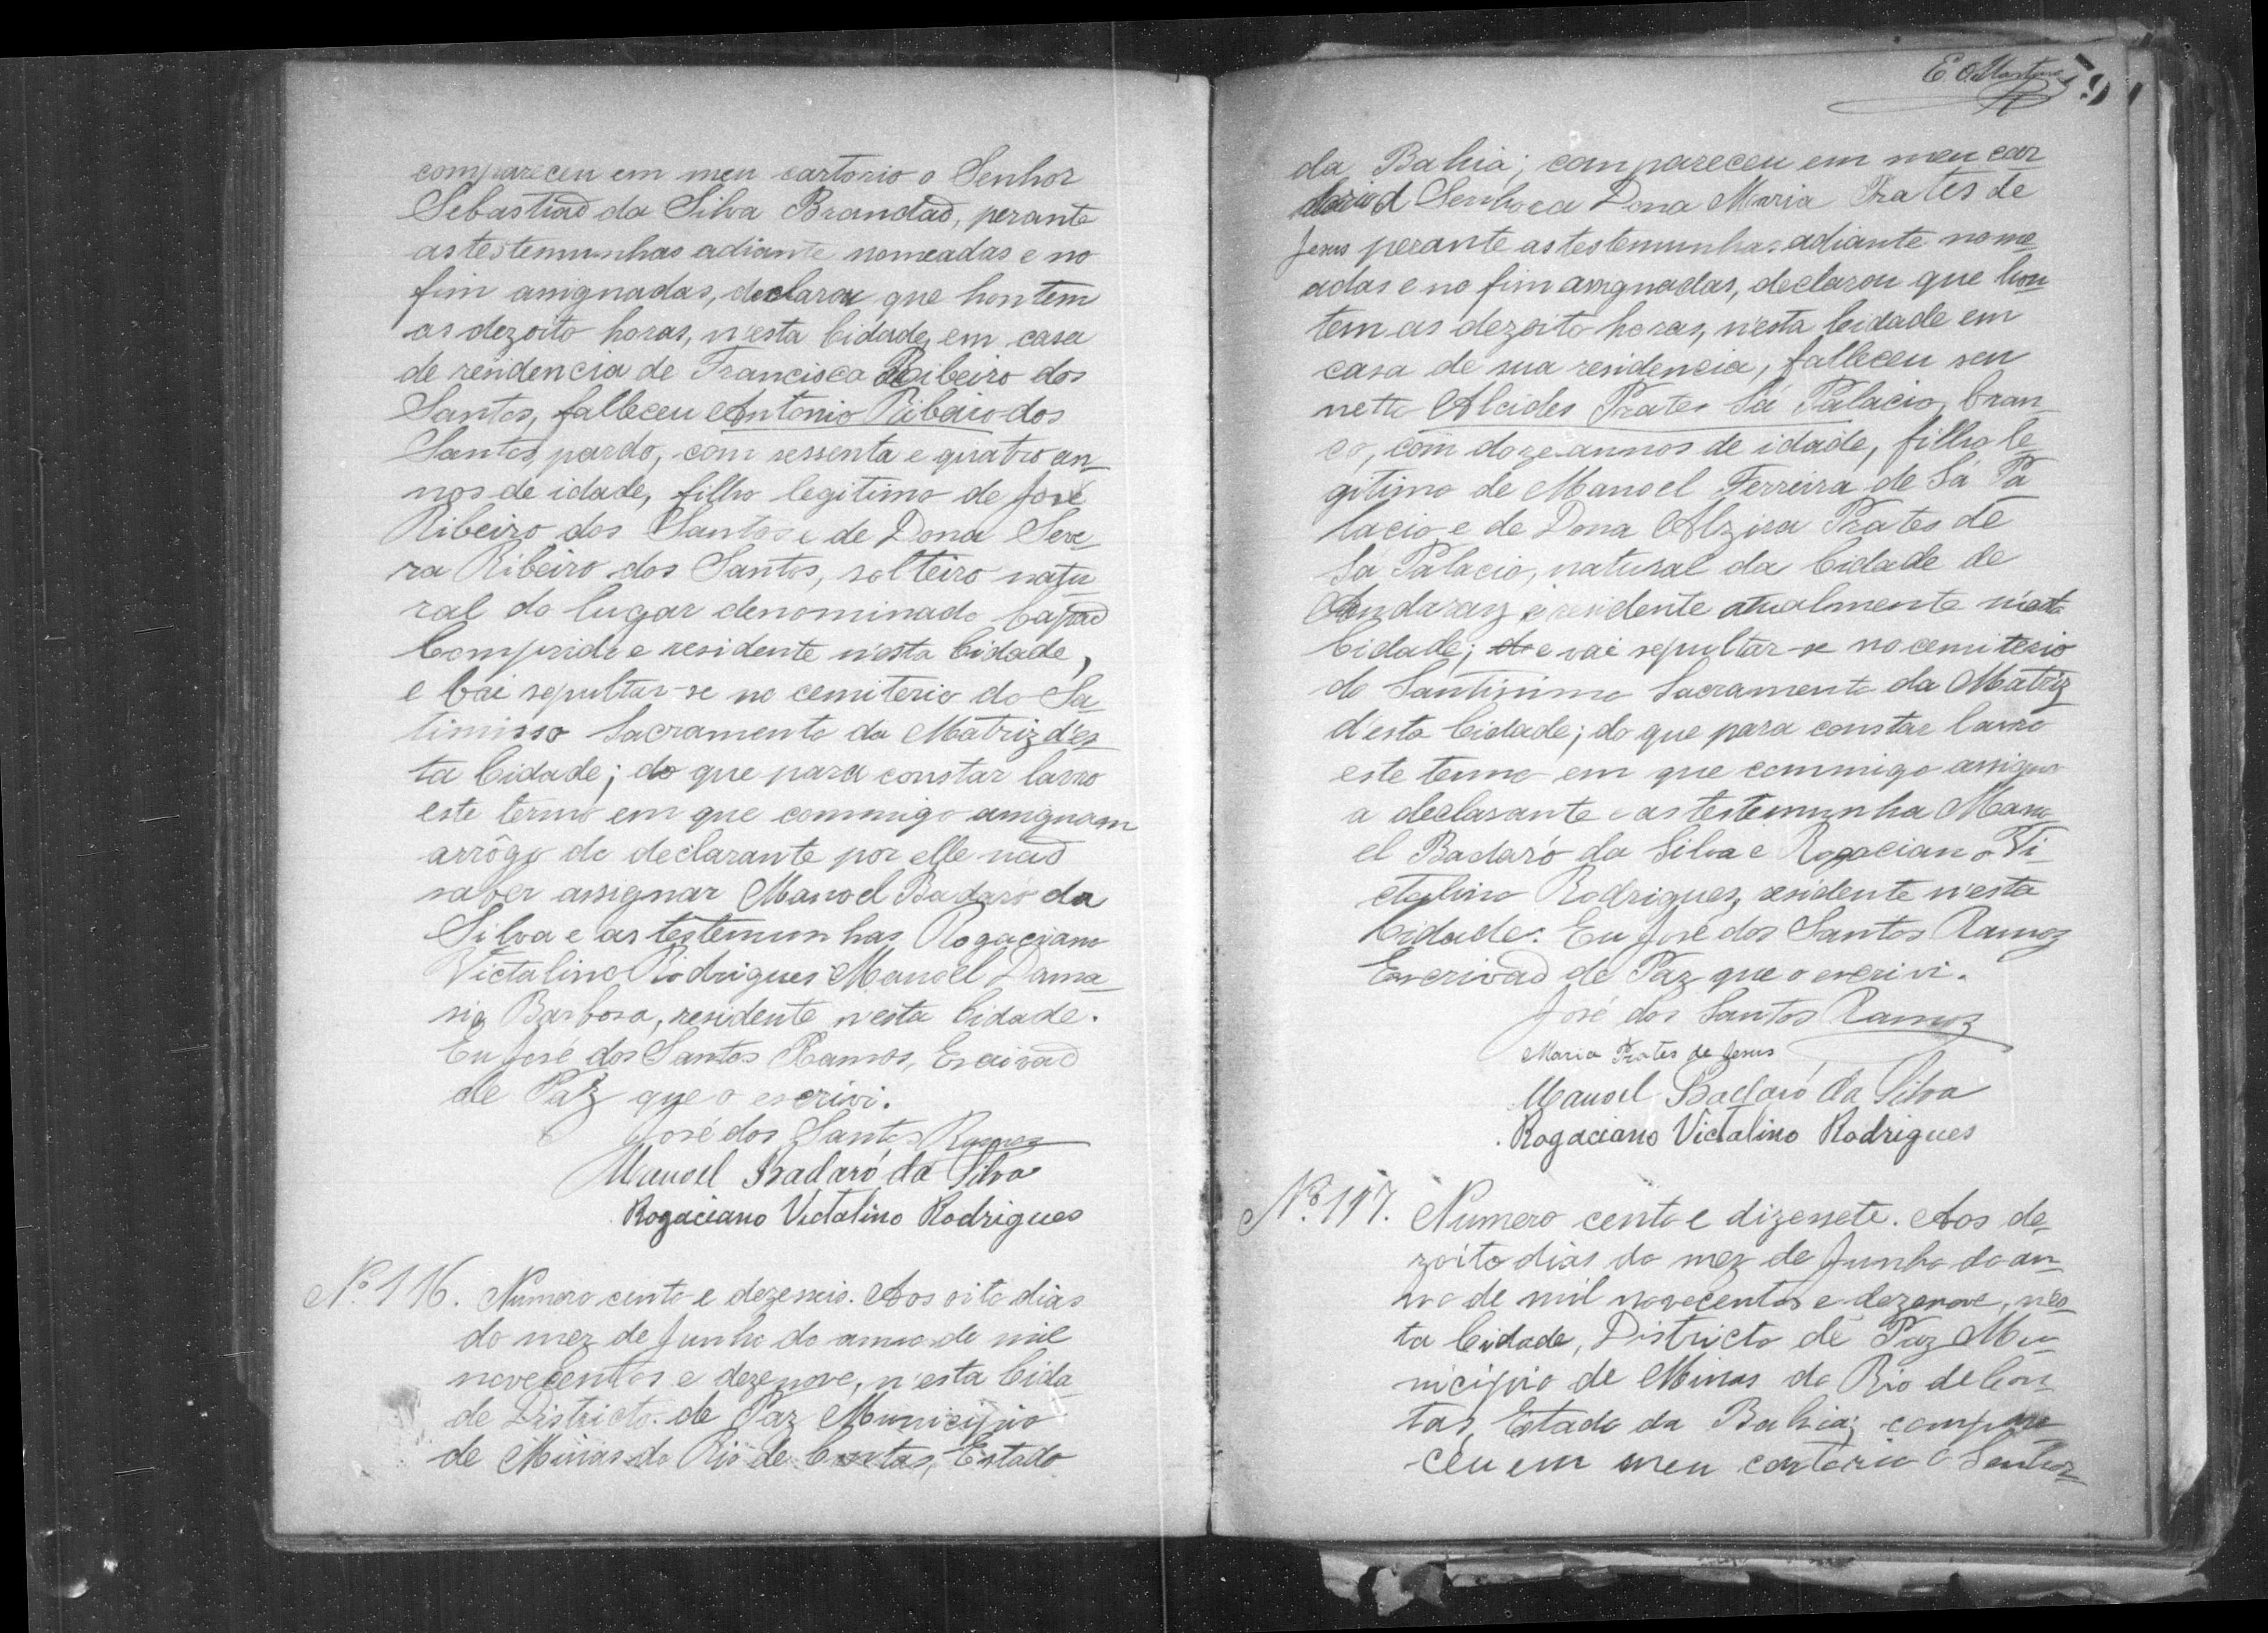 compareceu em meu cartorio o Senhor
Sebastiaõ da Silva Brandaõ, perante
as testemunhas adiante nomeadas e no
fim assignadas, declarou que hontem
as dezoito horas, n'esta Cidade, em casa
de residencia de Francisca Ribeiro dos
Santos, falleceu Antonio Ribeiro dos
Santos, pardo, com sessenta e quatro an-
nos de idade, filho legitimo de José
Ribeiro dos Santos e de Dona Seve-
ra Ribeiro dos Santos, solteiro natu-
ral do lugar denominado Capaõ
Comprido e residente n'esta Cidade,
e vai sepultar-se no cemiterio do Sa-
timisso Sacramento da Matriz d'es-
ta Cidade; do que para constar lavro
este termo em que commigo assignam
arrôgo do declarante por elle naõ
saber assignar Manoel Badaró da
Silva e as testemunhas Rogaciano
Victalino Rodrigues Manoel Dama-
sio Barbosa, residente n'esta Cidade.
Eu José dos Santos Ramos, Escrivaõ
de Paz que o escrivi.
José dos Santos Ramos
Manoel Badaró da Silva
Rogaciano Victalino Rodrigues
Nº 116. Numero cento e dezesseis. Aos oito dias
do mez de Junho do anno de mil
novecentos e dezenove, n'esta Cida-
de Districto de Paz Municipio
de Minas do Rio de Contas, Estado
E. O. Martins
59
da Bahia; compareceu em meu car-
torio a Senhora Dona Maria Prates de
Jesus perante as testemunhas adiante nome-
adas e no fim assignadas, declarou que hon-
tem as dezoito horas, n'esta Cidade em
casa de sua residencia, falleceu seu
netto Alcides Prates Sá Palacio, bran-
co, com doze annos de idade, filho le-
gitimo de Manoel Ferreira de Sá Pa-
lacio e de Dona Alzira Prates de
Sá Palacio, natural da Cidade de
Andaray e residente atualmente n'esta
Cidade; e vai sepultar-se no cemiterio
do Santissimo Sacramento da Matriz
d'esta Cidade; do que para constar lavro
este termo em que commigo assigna
a declarante e as testemunha Mano-
el Badaró da Silva e Rogaciano Vi-
ctalino Rodrigues, residente n'esta
Cidade. Eu José dos Santos Ramos
Escrivaõ de Paz que o escrivi.
José dos Santos Ramos
Maria Prates de Jesus
Manoel Badaró da Silva
Rogaciano Victalino Rodrigues
Nº 117. Numero cento e dizessete. Aos de-
zoito dias do mez de Junho do an-
no de mil novecentos e dezenove, n'es-
ta Cidade, Districto de Paz Mu-
nicipio de Minas do Rio de Con-
tas, Estado da Bahia; compare-
ceu em meu cartorio o Senhor